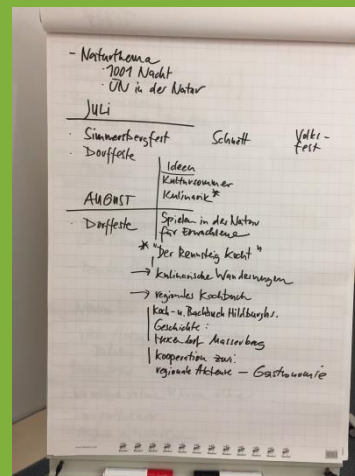 - Naturthema
· 1001 Nacht
· ÜN in der Natur
JULI
· Simmersbergfest Schnett Volks-
fest
· Dorffeste
Ideen
Kultursommer
Kulinarik*
AUGUST
· Dorffeste
Spielen in der Natur
für Erwachsene
* "Der Rennsteig kocht"
→ kulinarische Wanderungen
→ regionales Kochbuch
Koch- u. Backbuch Hildburghs.
Geschichte:
Hexendorf Masserberg
Kooperation zw:
regionale Akteure – Gastronomie